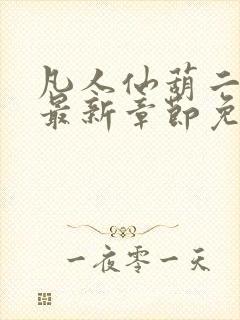 凡人仙葫二
最新章节免
一夜零一天